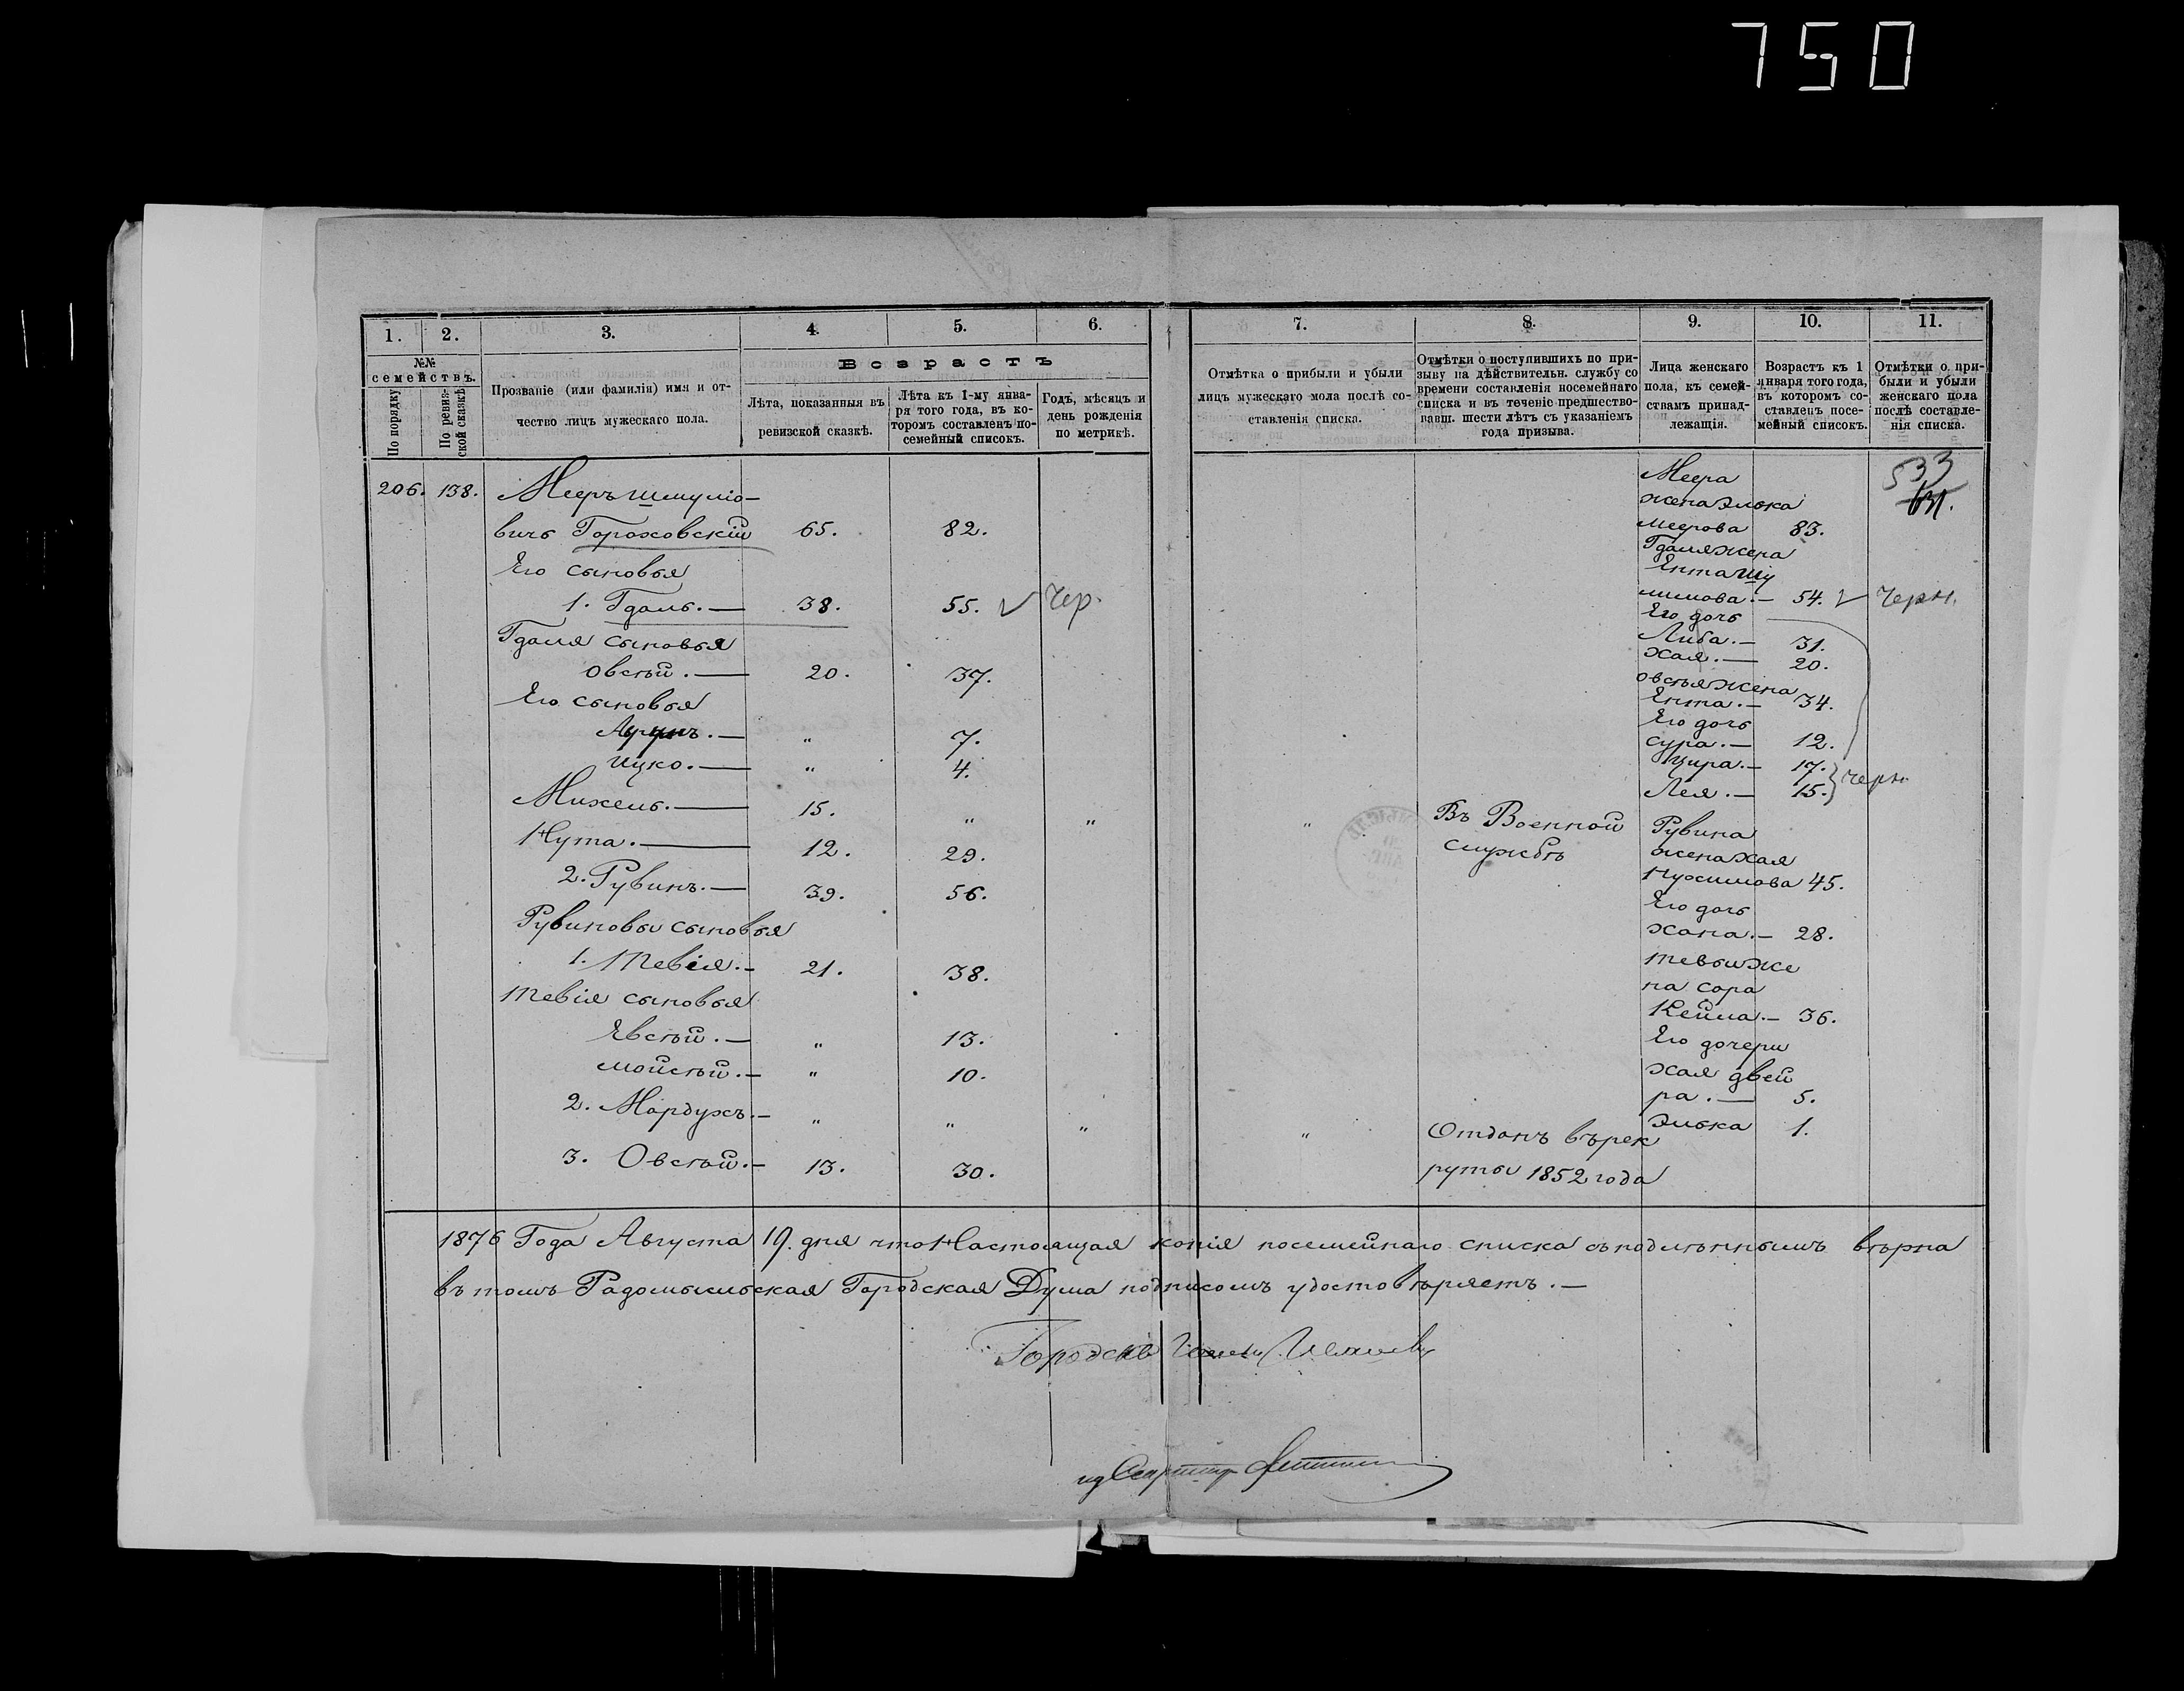 750
1.
2.
3.
4.
5.
6.
7.
8.
9.
10.
11.
№№
семействъ.
По порядку
По ревиз-
ской сказкѣ
Прозваніе (или фамилія) имя и от-
чество лицъ мужескаго пола.
Возрастъ
Лѣта, показанныя въ
ревизской сказкѣ.
Лѣта къ 1-му янва-
ря того года, въ ко-
торомъ составленъ по-
семейный списокъ.
Годъ, мѣсяцъ и
день рожденія
по метрикѣ.
Отмѣтка о прибыли и убыли
лицъ мужескаго мола послѣ со-
ставленія списка.
Отмѣтки о поступившихъ по при-
зыву на дѣйствительн. службу со
времени составленія посемейнаго
списка и въ теченіе предшество-
вавш. шести лѣтъ съ указаніемъ
года призыва.
Лица женскаго
пола, къ семей-
ствамъ принад-
лежащія.
Возрастъ къ 1
января того года,
въ которомъ со-
ставленъ посе-
мейный списокъ.
Отмѣтки о при-
были и убыли
женскаго пола
послѣ составле-
нія списка.
206. 138. Мееръ Шмуліо-
вичъ Гороховскій 65. 82.
Его сыновья
1. Гдаль. — 38. 55. Чер.
Гдаля сыновья
Овсѣй. — 20. 37.
Его сыновья
„ 7.
Ицко. — „ 4.
Михель. — 15. „ „ „ Въ Военной
службѣ
Нута. — 12. 29.
2. Рувинъ. — 39. 56.
Рувиновы сыновья
1. Тевія. — 21. 38.
Тевія сыновья
Евсѣй. — „ 13.
Мойсѣй. — „ 10.
2. Мордухъ. — „ „ „ „ Отданъ въ рек
руты 1852 года
3. Овсѣй. — 13. 30.
Меера
жена Элька
Меерова 83.
Гдаля жена
Ента Шу
лимова. — 54. Черн.
Его дочь
Либа. — 31.
Хая. — 20.
Овсѣя жена
Ента. — 34.
Его дочь
Сура. — 12.
Цира. — 17.
Лея. — 15. Черн.
Рувина
жена Хая
Нухимова 45.
Его дочь
Хана. — 28.
Тевыи же
на Сора
Кейла. — 36.
Его дочери
Хая Двей
ра. — 5.
Элька 1.
533
1876 Года Августа 19. дня что Настоящая копія посемейнаго списка съ подлѣннымъ вѣрна
въ томъ Радомысльская Городская Дума подписомъ удостовѣряетъ. —